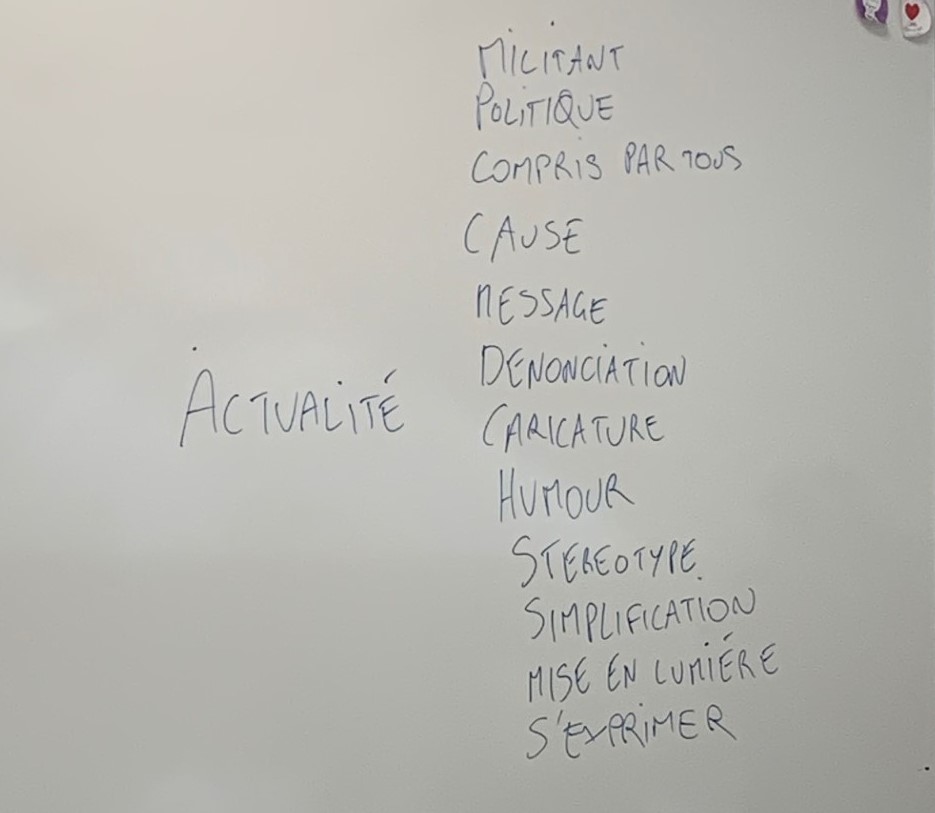 MILITANT
POLITIQUE
COMPRIS PAR TOUS
CAUSE
MESSAGE
DENONCIATION
ACTUALITÉ
CARICATURE
HUMOUR
STEREOTYPE
SIMPLIFICATION
MISE EN LUMIÉRE
S'EXPRIMER